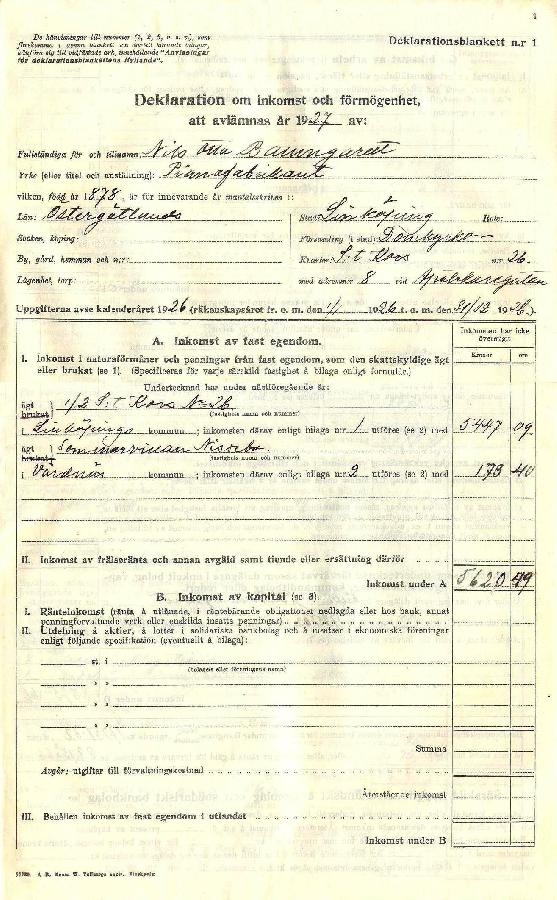 1
De hänvisningar till nummer (1, 2, 3, o. s. v.), som
förekomma i denna blankett
hänföra sig till vidfästade och, innehållande "Anvisningar
för deklarationsblankettens ifyllande".
Deklarationsblankett n:r 1
Deklaration om inkomst och förmögenhet,
att avlämnas år 1927 av:
Fullständiga för och tillnamn Nils Otto Baumgardt
Yrke (eller titel och anställning): Pianofabrikant
vilken, född år 1878, är för innevarande år mantalsskriven i:
Län: Östergötlands
Stad Linköping Rote:
Socken, köping:
Församling i stad: Domkyrko-
By, gård, hemman och n:r:
Kvarter S:t Kors n:r 26.
Lägenhet, torp:
med adressnr 8 vid Apotekaregatan
Uppgifterna avse kalenderåret 1926 (räkenskapsåret fr. o. m. den 1/1 1926 t. o. m. den 31/12 1926.)
A. Inkomst av fast egendom.
Inkomsten har icke överstigit
Kronor öre
I. Inkomst i naturaförmåner och penningar från fast egendom, som den skattskyldige ägt
eller brukat (se 1). (Specificeras för varje särskild fastighet å bilaga enligt formulär.)
Undertecknad har under nästföregående år:
ägt
brukat 1/2 S:t Kors N:o 26
(fastighets namn och nummer)
i Linköpings kommun; inkomsten därav enligt bilaga n:r 1 utföres (se 2) med 5447 09
ägt
brukat
(fastighets namn och nummer)
i Vårdnäs kommun; inkomsten därav enligt bilaga n:r 2 utföres (se 2) med 173 40
II. Inkomst av frälseränta och annan avgäld samt tionde eller ersättning därför
Inkomst under A 5620 49
B. Inkomst av kapital (se 3).
I. Ränteinkomst (ränta å utlånade, i räntebärande obligationer nedlagda eller hos bank, annat
penningförvaltande verk eller enskilda insatta penningar)
II. Utdelning å aktier, å lotter i solidariska bankbolag och å insatser i ekonomiska föreningar
enligt följande specifikation (eventuellt å bilaga):
st. i
(bolagets eller föreningens namn)
» »
» »
» »
Summa
Avgår: utgifter till förvaltningskostnad
Återstående inkomst
III. Behållen inkomst av fast egendom i utlandet
Inkomst under B